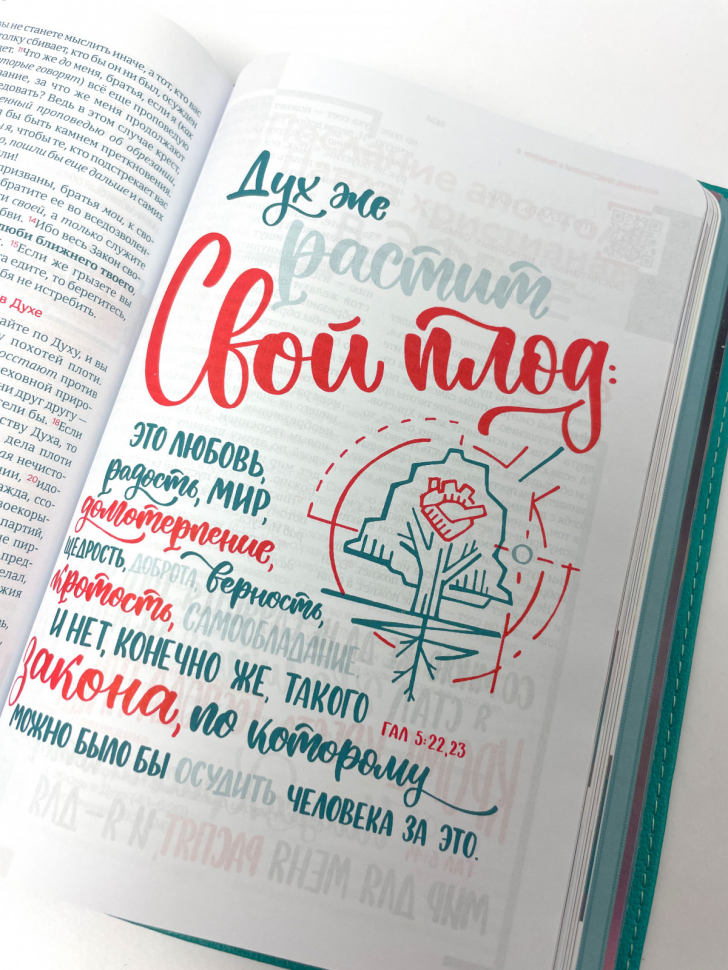 вы не станете мыслить иначе, а тот, кто вас
толку сбивает, кто бы он ни был, осужден
11Что же до меня, братья, если я (как
которые говорят) всё еще проповедую
за что же меня продолжают
Ведь в этом случае крест,
проповедью об обрезании,
бы быть камнем преткновения.
я, чтобы те, кто подстрекает вас
пошли бы еще дальше и самих
призваны, братья мои, к сво-
обратите ее во вседозволен-
своей, а только служите
14Ибо весь Закон сво-
люби ближнего твоего,
15Если же грызете вы
едите, то берегитесь,
бя не истребить.
в Духе
по Духу, и вы
похотей плоти.
восстают против
духовной приро-
ни друг другу —
бы. 18Если
Духа, то
дела плоти
нечисто-
20идо-
ссо-
партий,
пир-
пред-
Дух же
растит
Свой плод:
ЭТО ЛЮБОВЬ,
радость, МИР,
долготерпение,
ЩЕДРОСТЬ, ДОБРОТА, верность,
кротость, САМООБЛАДАНИЕ.
И НЕТ, КОНЕЧНО ЖЕ, ТАКОГО
закона, по которому
МОЖНО БЫЛО БЫ ОСУДИТЬ ЧЕЛОВЕКА ЗА ЭТО.
ГАЛ 5:22,23